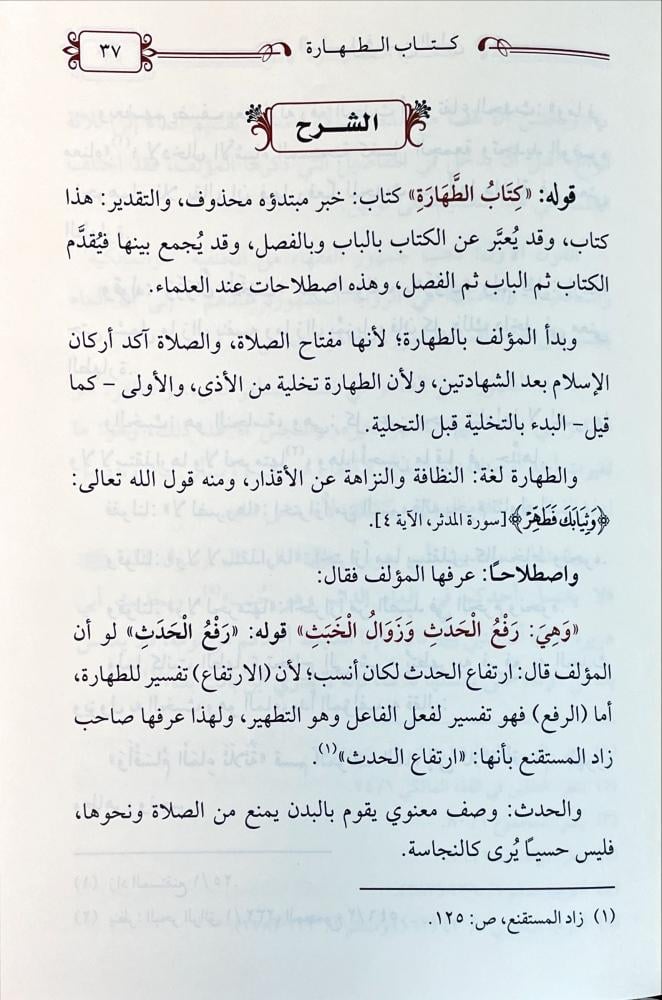 كتاب الطهارة
٣٧
الشرح
قوله: «كِتَابُ الطَّهَارَةِ» كتاب: خبر مبتدؤه محذوف، والتقدير: هذا
كتاب، وقد يُعبَّر عن الكتاب بالباب وبالفصل، وقد يُجمع بينها فيُقدَّم
الكتاب ثم الباب ثم الفصل، وهذه اصطلاحات عند العلماء.
وبدأ المؤلف بالطهارة؛ لأنها مفتاح الصلاة، والصلاة آكد أركان
الإسلام بعد الشهادتين، ولأن الطهارة تخلية من الأذى، والأولى – كما
قيل– البدء بالتخلية قبل التحلية.
والطهارة لغة: النظافة والنزاهة عن الأقذار، ومنه قول الله تعالى:
﴿وَثِيَابَكَ فَطَهِّرْ﴾ [سورة المدثر، الآية ٤].
واصطلاحًا: عرفها المؤلف فقال:
«وَهِيَ: رَفْعُ الْحَدَثِ وَزَوَالُ الْخَبَثِ» قوله: «رَفْعُ الْحَدَثِ» لو أن
المؤلف قال: ارتفاع الحدث لكان أنسب؛ لأن (الارتفاع) تفسير للطهارة،
أما (الرفع) فهو تفسير لفعل الفاعل وهو التطهير، ولهذا عرفها صاحب
زاد المستقنع بأنها: «ارتفاع الحدث»(١).
والحدث: وصف معنوي يقوم بالبدن يمنع من الصلاة ونحوها،
فليس حسيًا يُرى كالنجاسة.
(١) زاد المستقنع، ص: ١٢٥.